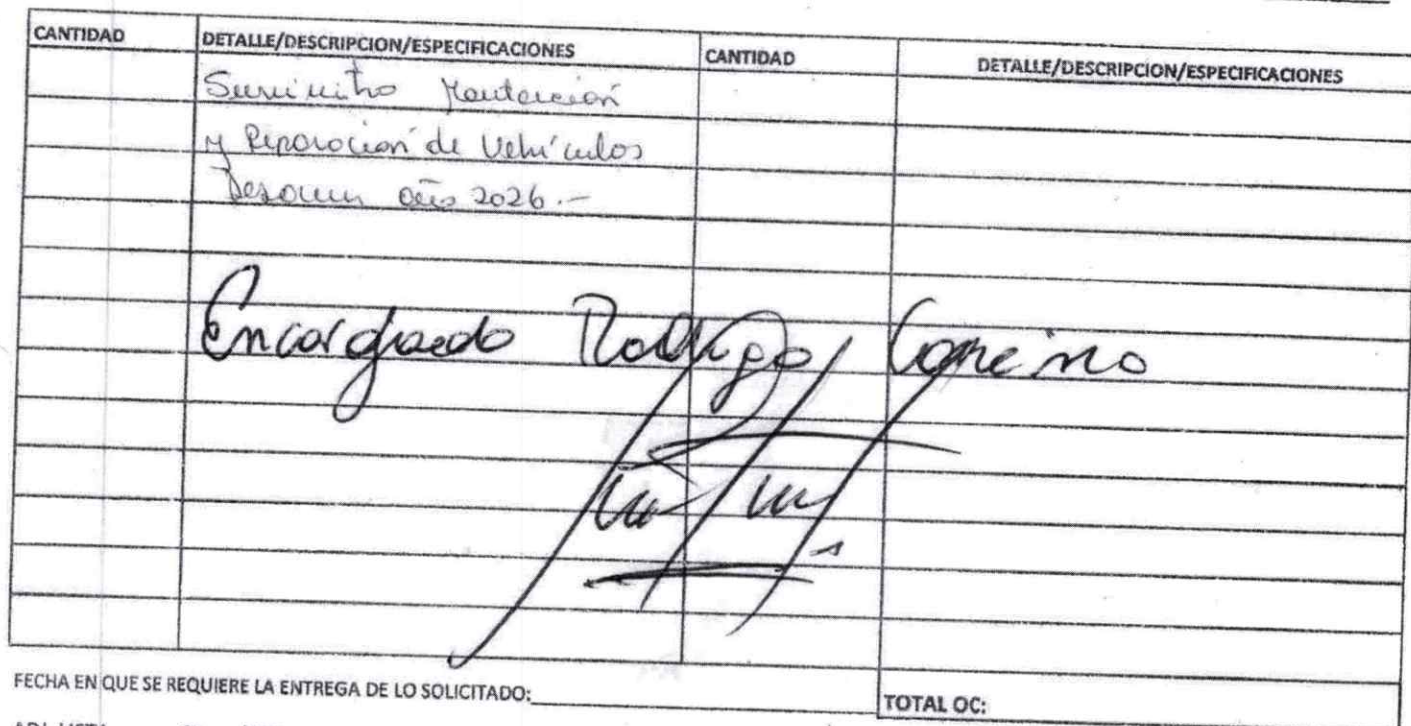 CANTIDAD DETALLE/DESCRIPCION/ESPECIFICACIONES CANTIDAD DETALLE/DESCRIPCION/ESPECIFICACIONES
Suministro Mantención
y Reparación de Vehículos
año 2026.-
Encargado Rodrigo
FECHA EN QUE SE REQUIERE LA ENTREGA DE LO SOLICITADO:
TOTAL OC: